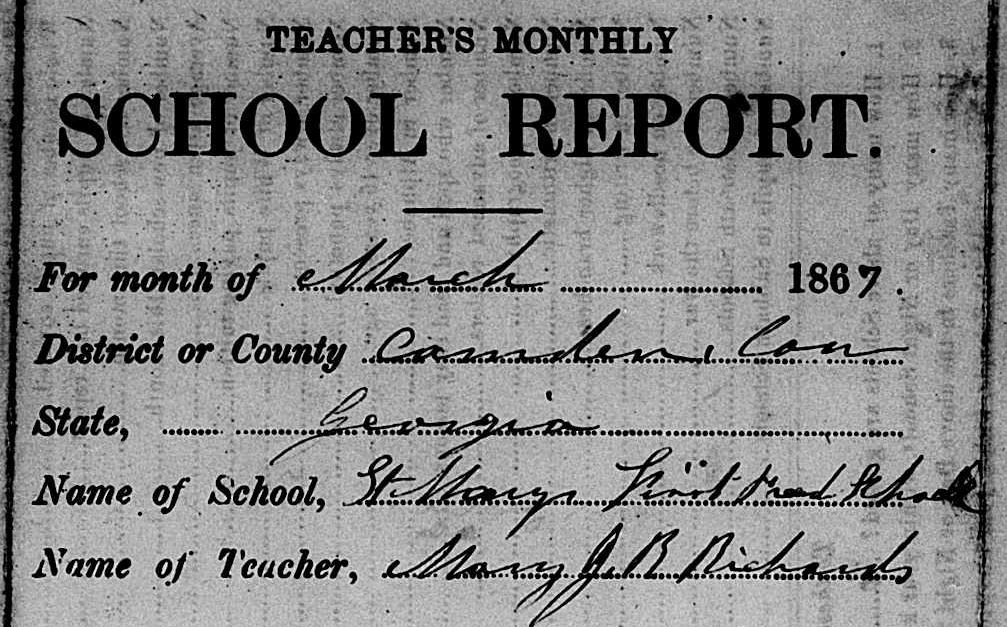 TEACHER'S MONTHLY
SCHOOL REPORT.
For month of March 1867.
District or County Camden, Cou
State, Georgia
Name of School, St Marys First Free School
Name of Teacher, Mary J. R. Richards